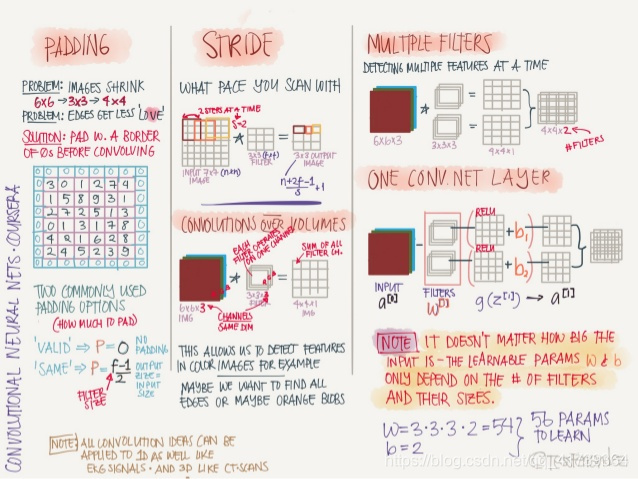 CONVOLUTIONAL NEURAL NETS · COURSERA
PADDING
PROBLEM: IMAGES SHRINK
6x6 → 3x3 → 4x4
PROBLEM: EDGES GET LESS 'LOVE'
SOLUTION: PAD W. A BORDER
OF 0s BEFORE CONVOLVING
3 0 1 2 7 4
1 5 8 9 3 1
2 7 2 5 1 3
0 1 3 1 7 8
4 2 1 6 2 8
2 4 5 2 3 9
TWO COMMONLY USED
PADDING OPTIONS
(HOW MUCH TO PAD)
'VALID' ⇒ P = 0 NO PADDING
'SAME' ⇒ P = f-1/2 OUTPUT SIZE = INPUT SIZE
FILTER
SIZE
NOTE: ALL CONVOLUTION IDEAS CAN BE
APPLIED TO 1D AS WELL LIKE
EKG SIGNALS · AND 3D LIKE CT-SCANS
STRIDE
WHAT PACE YOU SCAN WITH
2 STEPS AT A TIME
S=2
* =
INPUT 7x7 (nxn)
IMAGE
3x3 (fxf)
FILTER
3x3 OUTPUT
IMAGE
n+2f-1/s +1
CONVOLUTIONS OVER VOLUMES
EACH
FILTER OPERATES
ON ONE CHANNEL
SUM OF ALL
FILTER CH.
* =
6x6x3
IMG
3x3x3
FILTER
4x4x1
IMG
CHANNELS
SAME DIM
THIS ALLOWS US TO DETECT FEATURES
IN COLOR IMAGES FOR EXAMPLE
MAYBE WE WANT TO FIND ALL
EDGES OR MAYBE ORANGE BLOBS
MULTIPLE FILTERS
DETECTING MULTIPLE FEATURES AT A TIME
* =
* =
6x6x3
3x3x3
4x4x1
4x4x2
#FILTERS
ONE CONV. NET LAYER
RELU
+ b₁
RELU
+ b₂
INPUT
a[0]
FILTERS
W[1]
g(z[1]) → a[1]
NOTE IT DOESN'T MATTER HOW BIG THE
INPUT IS - THE LEARNABLE PARAMS W & b
ONLY DEPEND ON THE # OF FILTERS
AND THEIR SIZES.
W = 3·3·3·2 = 54
b = 2
56 PARAMS
TO LEARN